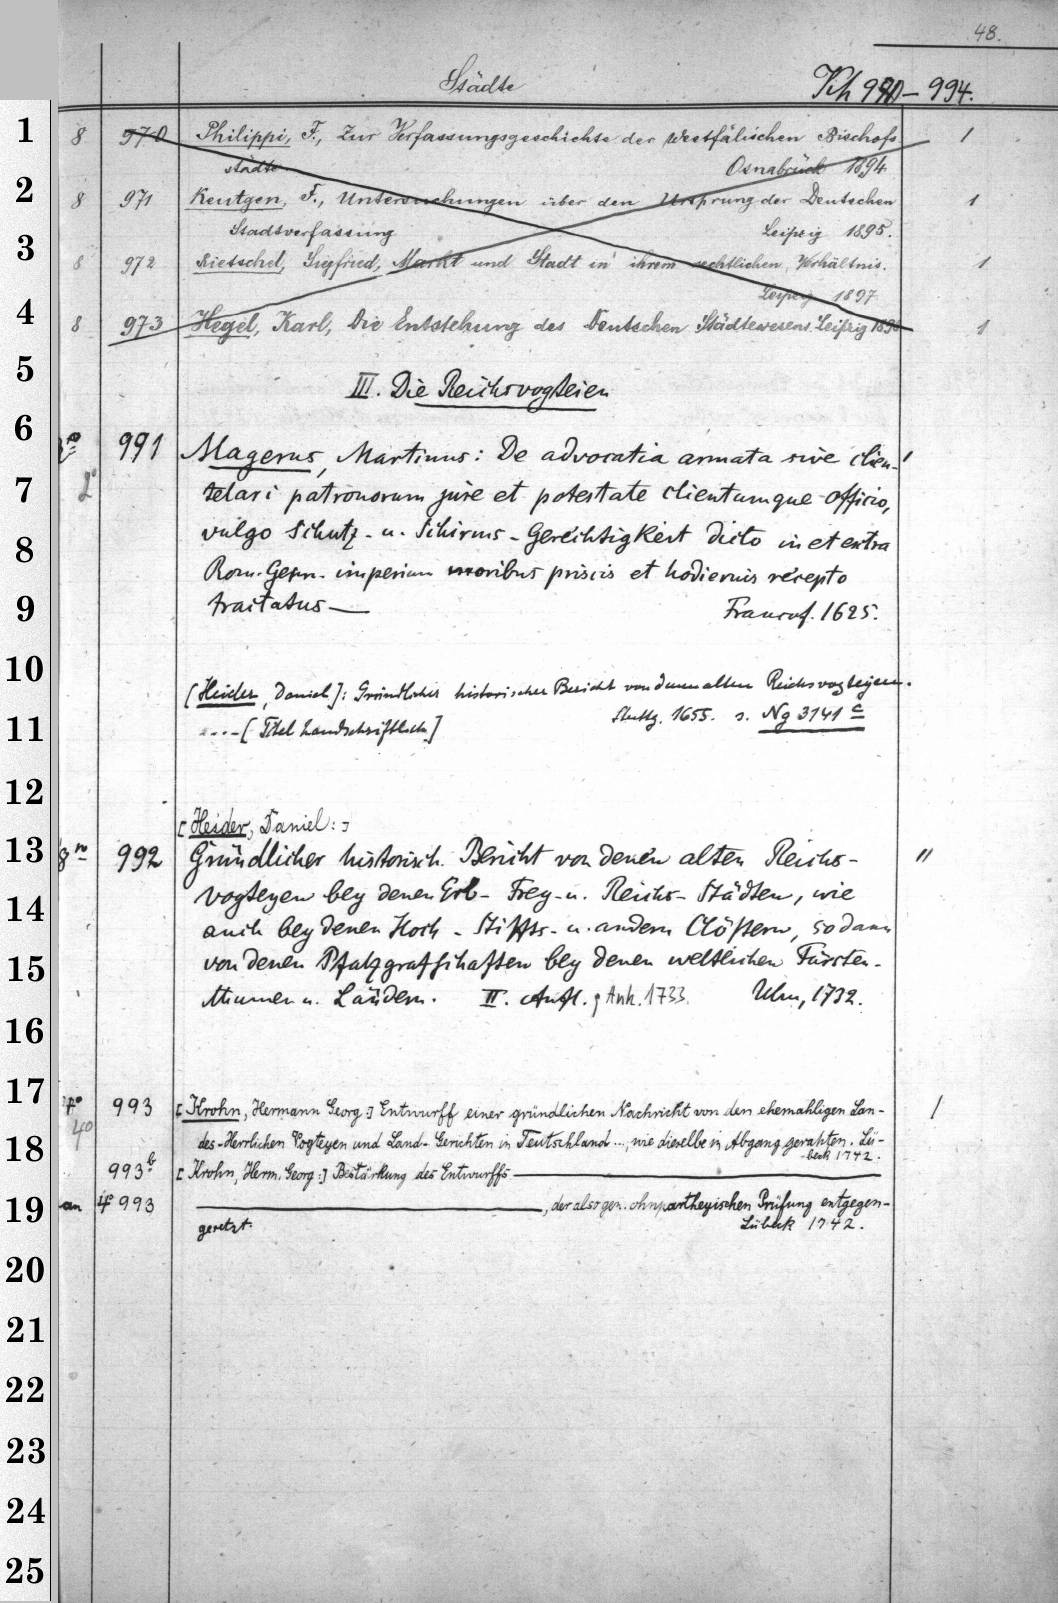 48.
Städte Kh 990 - 994.
1 8 970 Philippi, F., Zur Verfassungsgeschichte der Westfälischen Bischofs 1
städte Osnabrück 1894
2 8 971 Keutgen, F., Untersuchungen über den Ursprung der Deutschen 1
Stadtverfassung Leipzig 1895.
3 8 972 Rietschel, Siegfried, Markt und Stadt in ihrem rechtlichen Verhältnis. 1
Leipzig 1897
4 8 973 Hegel, Karl, Die Entstehung des Deutschen Städtewesens. Leipzig 1898 1
5 III. Die Reichsvogteien
6 991 Magerus, Martinus: De advocatia armata sive clien- 1
7 2° telari patronorum jure et potestate clientumque officio,
vulgo Schutz- u. Schirms-Gerechtigkeit dicto in et extra
8 Rom. Germ. imperium moribus priscis et hodiernis recepto
9 tractatus — Francof. 1625.
10 [Heider, Daniel]: Gründlicher historischer Bericht von denen alten Reichsvogteyen.
11 ....[Titel handschriftlich] Stuttg. 1655. s. Ng 3141 c
12
[Heider, Daniel:]
13 8° 992 Gründlicher historisch. Bericht von denen alten Reichs- "
14 vogteyen bey denen Erb- Frey- u. Reichs-Städten, wie
auch bey denen Hoch-Stiffts- u. andern Clöstern, so dann
15 von denen Pfalzgraffschaften bey denen weltlichen Fürsten-
thumen u. Ländern. II. Aufl. Anh. 1733. Ulm, 1732.
16
17 4° 993 [Krohn, Hermann Georg:] Entwurff einer gründlichen Nachricht von den ehemahligen Lan- 1
18 4° des-Herrlichen Vogteyen und Land-Gerichten in Teutschland..., wie dieselbe in Abgang gerahten. Lü-
beck 1742.
993b [Krohn, Herm. Georg:] Bestärkung des Entwurffs —
19 an 4° 993 —, der also gen. ohnpartheyischen Prüfung entgegen-
gesetzt. Lübeck 1742.
20
21
22
23
24
25